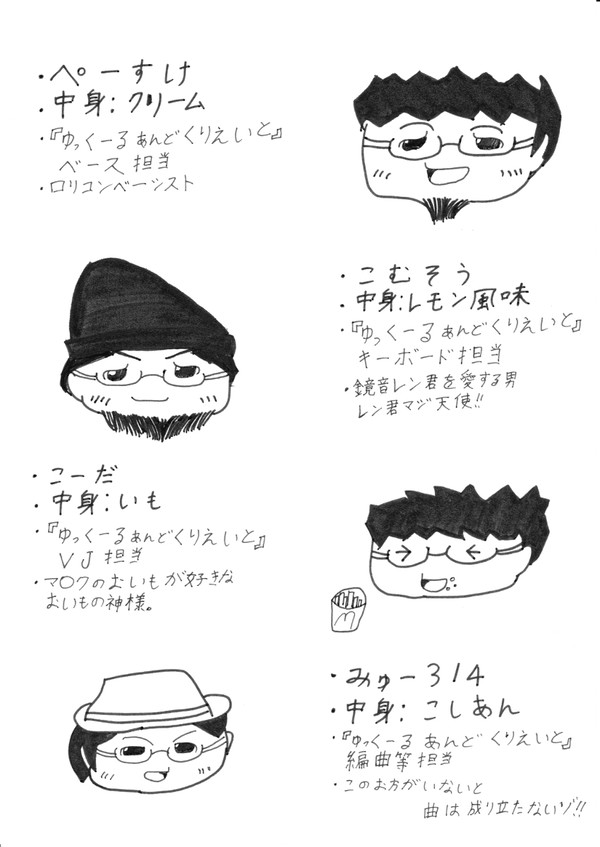 ・ぺーすけ
・中身:クリーム
・『ゆっくーるぁんどくりえいと』
ベース担当
・ロリコンベーシスト
・こむそう
・中身:レモン風味
・『ゆっくーるぁんどくりえいと』
キーボード担当
・鏡音レン君を愛する男
レン君マジ天使!!
・こーだ
・中身:いも
・『ゆっくーるぁんどくりえいと』
VJ担当
・マ○クのおいもが好きな
おいもの神様。
M
・みゅー314
・中身:こしあん
・『ゆっくーるぁんどくりえいと』
編曲等担当
・このお方がいないと
曲は成り立たないゾ!!